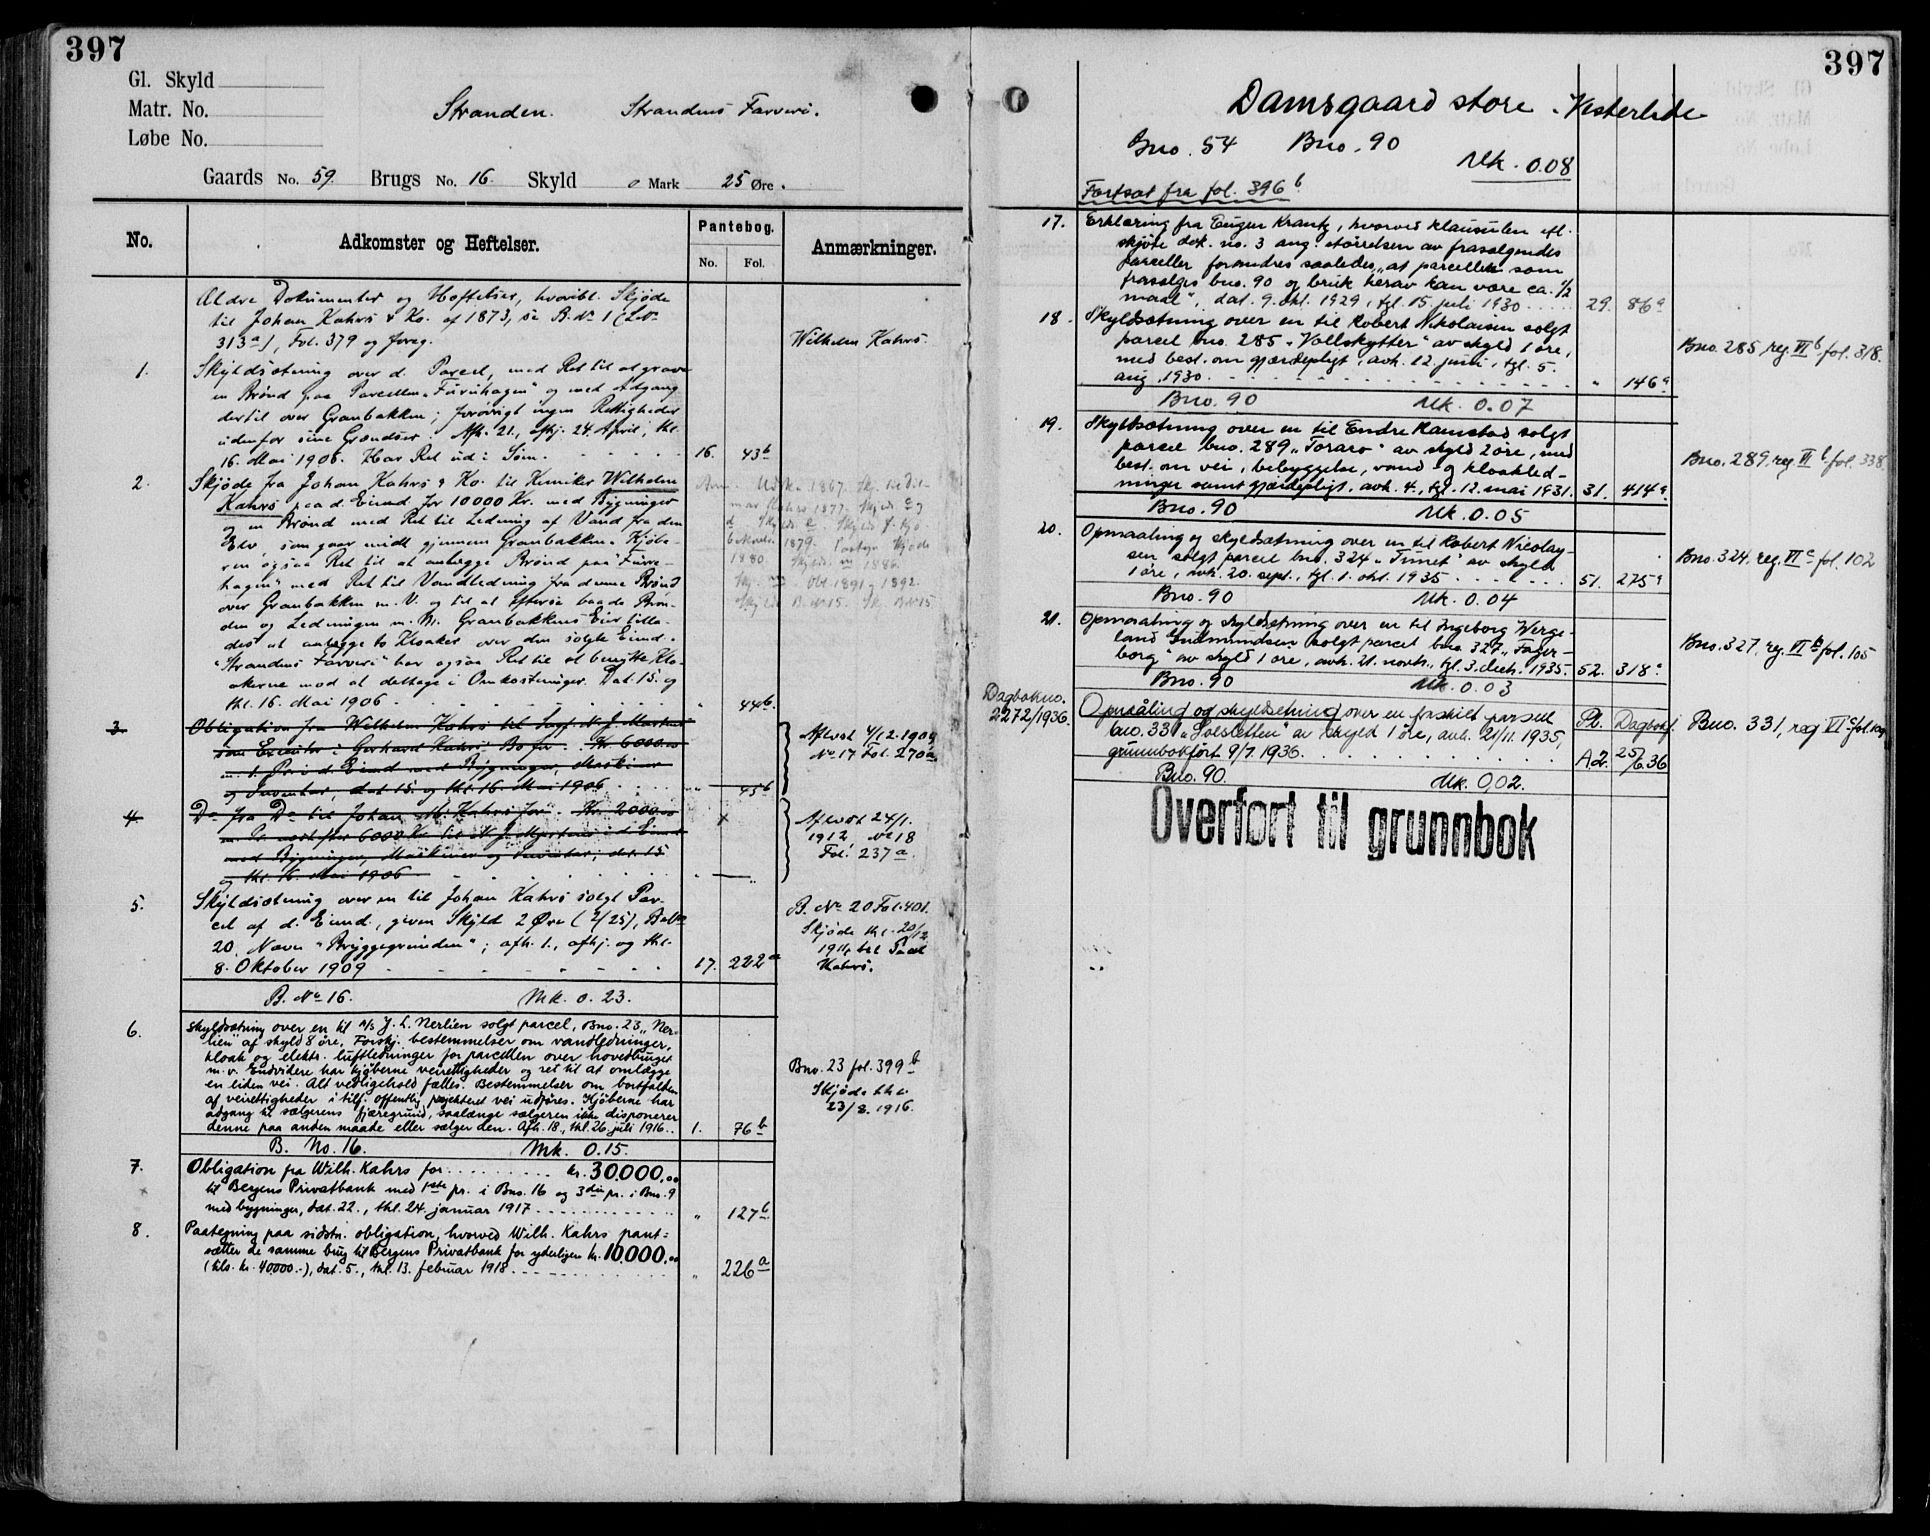 397
Gl. Skyld
Matr. No.
Løbe No.
Stranden. Strandens Farveri.
Gaards No. 59. Brugs No. 16. Skyld 0 Mark 25 Øre.
No. Adkomster og Heftelser. Pantebog. Anmærkninger.
No. Fol.
Ældre Dokumenter og Heftelser, hvoribl. Skjøde
til Johan Kahrs & Ko. af 1873, se B. No 1 (L No
313a), Fol. 379 og foreg.
Wilhelm Kahrs.
1. Skyldsætning over d. Parcel, med Ret til at grave
en Brønd paa Parcellen "Furuhagen" og med Adgang
dertil over Granbakken; forøvrigt ingen Rettigheder
udenfor sine Grændser. Afh. 21., afhj. 24. April, thl.
16. Mai 1906. Har Ret ud i Søen. 16. 43b
2. Skjøde fra Johan Kahrs & Ko. til Kemiker Wilhelm
Kahrs paa d. Eiend. for 10000 Kr. med Bygninger
og en Brønd med Ret til Ledning af Vand fra den
Elv, som gaar midt gjennem Granbakken. Kjøbe-
ren ogsaa Ret til at anlægge Brønd paa "Furu-
hagen" med Ret til Vandledning fra denne Brønd
over Granbakken m. V. og til at efterse baade Brøn-
den og Ledningen m. M. Granbakkens Eier tilla-
des at anlægge to Kloaker over den solgte Eiend.
"Strandens Farveri" har ogsaa Ret til at benytte Klo-
akerne mod at deltage i Omkostninger. Dat. 15. og
thl. 16. Mai 1906 " 44b.
3. Obligation fra Wilhelm Kahrs til Sagf. N. J. Mortens
som Executor i Gerhard Kahrs' Bo for Kr. 6000.00
m. 1. Pri. i d. Eiend. med Bygninger, Maskiner
og Inventar, dat. 15. og thl. 16. Mai 1906 " 45b
Aflyst 4/12. 1909
No. 17 Fol. 270a
4. Do fra Do til Johan M. Kahrs for Kr. 2000.00
m. Pr. næst efter 6000 Kr. til N. J. Mortens i d. Eiend.
med Bygninger, Maskiner og Inventar; dat. 15
og thl. 16. Mai 1906
Aflyst 24/1.
1912 No 18
Fol. 237a.
5. Skyldsætning over en til Johan Kahrs solgt Par-
cel af d. Eiend., given Skyld 2 Øre (2/25), B. No
20, Navn "Bryggegrunden"; afh. 1., afhj. og thl.
8. Oktober 1909 17. 222a
B. No 20 Fol. 401.
Skjøde thl. 20/12
1911 til Paal
Kahrs.
B. No 16. Mk. 0.23.
6. Skyldsætning over en til A/S J. L. Nerlien solgt parcel, Bno. 23 "Ner-
lien" af skyld 8 øre. Forskj. bestemmelser om vandledninger,
kloak og elektr. luftledninger for parcellen over hovedbruget
m.v. Endvidere har kjøberne veirettigheder og ret til at omlægge
en liden vei. Alt vedligehold fælles. Bestemmelser om bortfalden
af veirettigheder i tilf. offentlig projekteret vei udføres. Kjøberne har
adgang til sælgerens fjæregrund, saalænge sælgeren ikke disponerer
denne paa anden maade eller sælger den. Afh. 18., thl. 26. juli 1916. 1. 76b
Bno. 23 fol. 399b
Skjøde thl.
23/8. 1916.
B. No. 16. Mk. 0.15.
7. Obligation fra Wilh. Kahrs for kr. 30.000,00
til Bergens Privatbank med 1ste pr. i Bno. 16 og 3die pr. i Bno. 9
med bygninger, dat. 22., thl. 24. januar 1917. " 127b
8. Paategning paa sidstn. obligation, hvorved Wilh. Kahrs pant-
sætter de samme brug til Bergens Privatbank for yderligere kr. 10.000,00
(tils. kr. 40.000.-), dat. 5., thl. 13. februar 1918 " 226a
397
Damsgaard store. Vesterlide
Gno. 54 Bno. 90
Mk. 0.08
Fortsat fra fol. 396b
17. Erklæring fra Eugen Krantz, hvorved klausulen ifl.
skjøte dok. no. 3 ang. størrelsen av frasolgendes
parceller forandres saaledes, "at parceller som
frasælges bno. 90 og bruk herav kan være ca. 1/2
maal", dat. 9. okt. 1929, tgl. 15. juli 1930 29. 86a
18. Skyldsætning over en til Robert Nikolaisen solgt
parcel bno. 285 "Vollskytter" av skyld 1 øre,
med best. om gjærdepligt, avh. 12. juni, tgl. 5.
aug. 1930 " 146a
Bno. 285, reg. VI b fol. 318.
Bno. 90 Mk. 0.07
19. Skyldsætning over en til Endre Ramstad solgt
parcel bno. 289 "Toraro" av skyld 2 øre, med
best. om vei, bebyggelse, vand- og kloakled-
ninger samt gjærdepligt, avh. 4., tgl. 12. mai 1931. 31. 414a.
Bno. 289. reg. VI b fol. 338
Bno. 90 Mk. 0.05
20. Opmaaling og skyldsætning over en til Robert Nicolay-
sen solgt parcel bno. 324 "Tunet" av skyld
1 øre, avh. 20. sept., tgl. 1. okt. 1935 51. 275a
Bno. 324. reg. VI c fol. 102
Bno. 90 Mk. 0.04
21. Opmaaling og skyldsætning over en til Ingeborg Werge-
land Gudmundsen solgt parcel bno. 327 "Fager-
borg" av skyld 1 øre, avh. 21. novb., tgl. 3. decb. 1935. 52. 318a
Bno. 327. reg. VI c fol. 105
Bno. 90 Mk. 0.03
Dagbokno.
2272/1936.
Opmåling og skyldsetning over en fraskilt parsell
bno. 331 "Solsletten" av skyld 1 øre, avh. 21/11. 1935,
grunnbokført 9/7. 1936.
Pb. Dagbokf.
A2. 25/6.36
Bno. 331, reg VI c fol. 109
Bno. 90. Mk. 0,02.
Overført til grunnbok